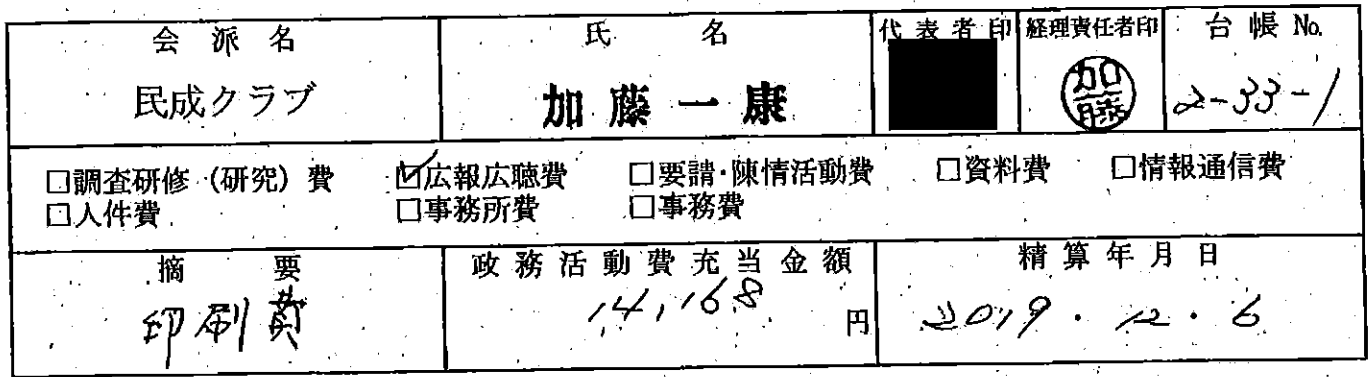 会派名 氏名 代表者印 経理責任者印 台帳No.
民成クラブ 加藤一康 加藤 2-33-1
□調査研修(研究)費 ☑広報広聴費 □要請・陳情活動費 □資料費 □情報通信費
□人件費 □事務所費 □事務費
摘要 政務活動費充当金額 精算年月日
印刷費 14,168円 2019.12.6